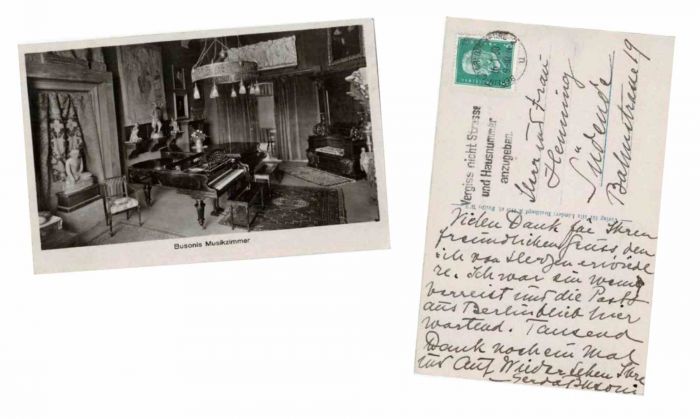 Busonis Musikzimmer
Vergiss nicht Strasse
und Hausnummer
anzugeben.
Herr und Frau
Henning
Südende
Bahnstrasse 19
Vielen Dank für Ihren
freundlichen Gruss den
ich von Herzen erwiede
re. Ich war ein wenig
verreist und die Post
aus Berlin blieb hier
wartend. Tausend
Dank noch ein Mal
und Auf Wiedersehen Ihre
Gerda Busoni